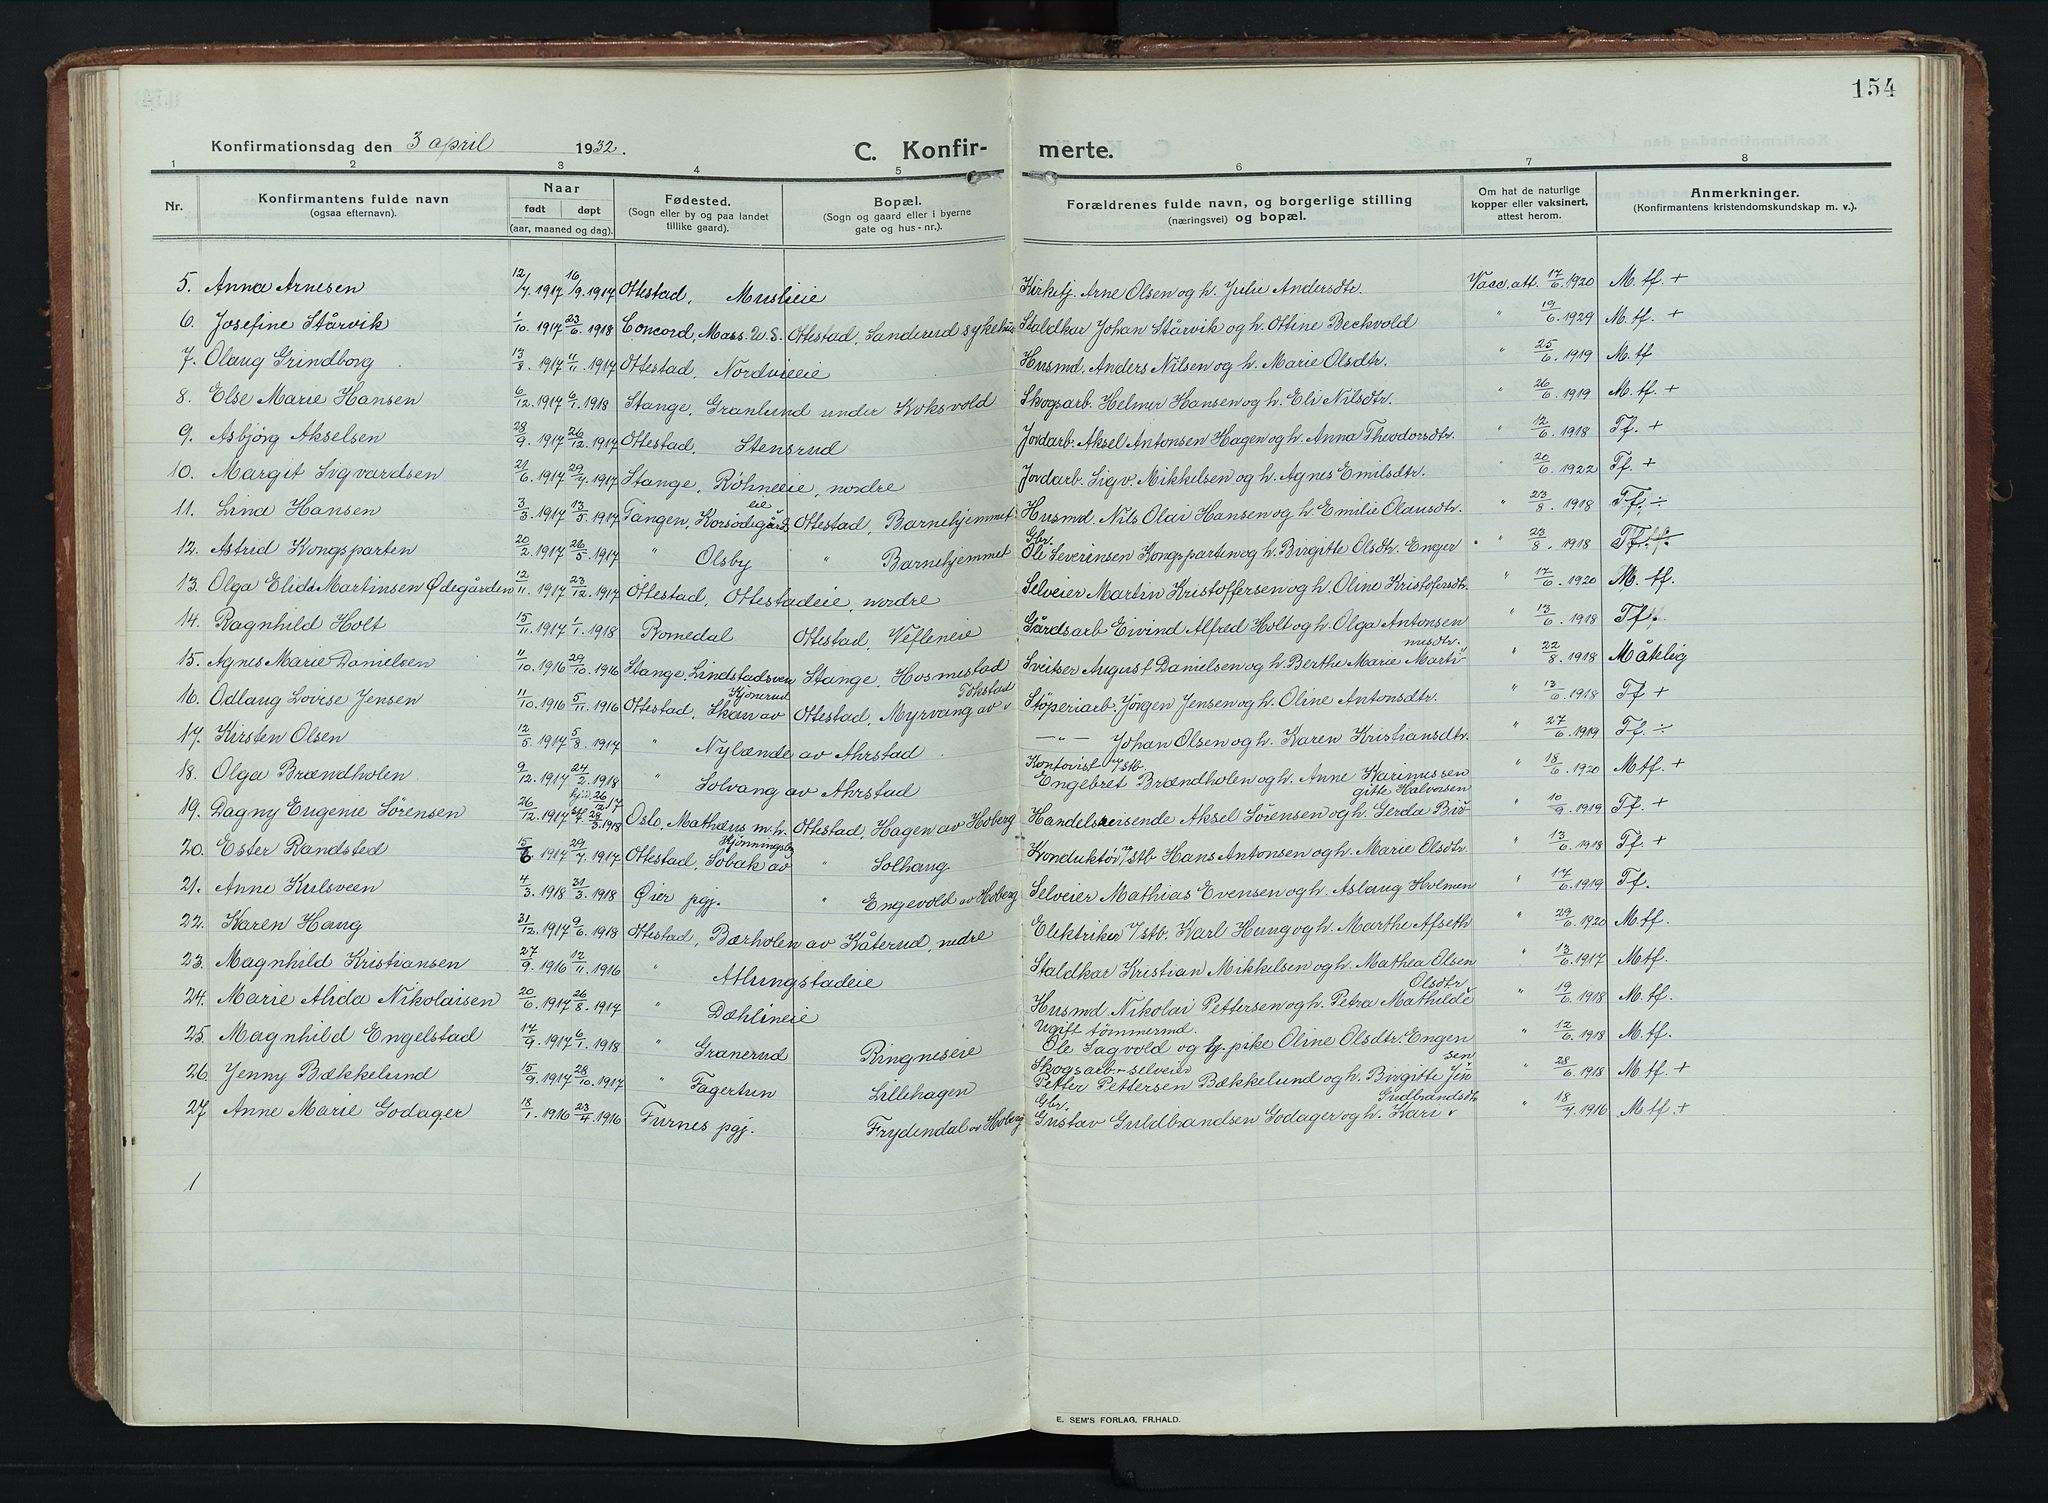 154
Konfirmationsdag den 3 april 1932. C. Konfir- merte.
1 2 3 4 5 6 7 8
Nr. Konfirmantens fulde navn (ogsaa efternavn). Naar født døpt (aar, maaned og dag). Fødested. (Sogn eller by og paa landet tillike gaard). Bopæl. (Sogn og gaard eller i byerne gate og hus-nr.). Forældrenes fulde navn, og borgerlige stilling (næringsvei) og bopæl. Om hat de naturlige kopper eller vaksinert, attest herom. Anmerkninger. (Konfirmantens kristendomskundskap m. v.).
5. Anna Arnesen 12/7. 1917 16/9. 1917 Ottestad, Muslieie Kirketj. Arne Olsen og h. Julie Andersdtr. Vacc. att. 17/6. 1920 M. tf. +
6. Josefine Stårvik 1/10. 1917 23/6. 1918 Concord, Mass. U. S. Ottestad, Sanderud sykehus Staldkar Johan Stårvik og h. Ottine Beckvold " 19/6. 1929 M. tf. +
7. Olaug Grindborg 13/8. 1917 11/11. 1917 Ottestad, Nordvieie Husmd. Anders Nilsen og h. Marie Olsdtr. " 25/6. 1919 M. tf
8. Else Marie Hansen 6/12. 1917 6/1. 1918 Stange, Granlund under Koksvold Skogsarb. Helmer Hansen og h. Eli Nilsdtr. " 26/6. 1919 M. tf. +
9. Asbjörg Akselsen 28/9. 1917 26/12. 1917 Ottestad, Stensrud Jordarb. Aksel Antonsen Hagen og h. Anna Theodorsdtr. " 12/6. 1918 Tf. +
10. Margit Sigvardsen 21/6. 1917 29/7. 1917 Stange, Röhneeie, nordre Jordarb. Sigv. Mikkelsen og h. Agnes Emilsdtr. " 20/6. 1922 Tf. +
11. Lina Hansen 3/3. 1917 13/5. 1917 Tangen, Korsödegårdseie Ottestad, Barnehjemmet Husmd. Nils Olai Hansen og h. Emilie Olausdtr. " 23/8. 1918 Tf. ÷
12. Astrid Kongsparten 20/2. 1917 26/5. 1917 " Olsby " Barnehjemmet Gbr. Ole Severinsen Kongsparten og h. Birgitte Olsdtr. Enger " 23/8. 1918 Tf.
13. Olga Elida Martinsen Ødegården 12/11. 1917 23/12. 1917 Ottestad, Ottestadeie, nordre Selveier Martin Kristoffersen og h. Oline Kristofersdtr. " 17/6. 1920 M. tf.
14. Ragnhild Holt 15/11. 1917 1/1. 1918 Romedal Ottestad, Vefleneie Gårdsarb Eivind Alfred Holt og h. Olga Antonsen " 13/6. 1918 Tf.
15. Agnes Marie Danielsen 11/10. 1916 29/10. 1916 Stange, Lindstadsven Stange, Hosmestad Sveitser August Danielsen og h. Berthe Marie Martinusdtr. " 22/8. 1918 Måtelig
16. Odlaug Lovise Jensen 11/10. 1916 5/11. 1916 Ottestad, Skan av Kjonerud Ottestad, Myrvang av Tokstad Stöperiarb. Jörgen Jensen og h. Oline Antonsdtr. " 13/6. 1918 Tf +
17. Kirsten Olsen 12/5. 1917 5/8. 1917 " Nylænde av Ahrstad —"— Johan Olsen og h. Karen Kristiansdtr. " 27/6. 1919 Tf. ÷
18. Olga Brændholen 9/12. 1917 24/2. 1918 " Solvang av Ahrstad Kontorist v/stb. Engebret Brændholen og h. Anne Karinussen " 18/6. 1920 M tf. +
19. Dagny Eugenie Sörensen 26/12. 1917 hjd. 26/12 17 st. 28/3. 1918 Oslo, Mathæus m. h. Ottestad, Hagen av Hoberg Handelsreisende Aksel Sörensen og h. Gerda Birgitte Halvorsen " 10/9. 1919 Tf. +
20. Ester Randsted 15/6 1917 29/7. 1917 Ottestad, Sobak av Kjönningsby " Solhaug. Konduktör v/stb Hans Antonsen og h. Marie Olsdtr. " 13/6. 1918 Tf. +
21. Anne Kulsveen 4/3. 1918 31/3. 1918 Øier pgj. " Engevold av Hoberg Selveier Mathias Evensen og h. Aslaug Holmen " 17/6. 1919 Tf.
22. Karen Haug 31/12. 1917 9/6. 1918 Ottestad, Bærholen av Kåterud, nedre Elektriker v/stb. Karl Haug og h. Marthe Afseth " 29/6. 1920 M. tf.
23. Magnhild Kristiansen 27/9. 1916 12/11. 1916 " Atlungstadeie Staldkar Kristian Mikkelsen og h. Mathea Olsen " 13/6. 1917 Mtf.
24. Marie Alida Nikolaisen 20/6. 1917 26/8. 1917 " Dæhlineie Husmd. Nikolai Pettersen og h. Petra Mathilde Olsdtr. " 19/6. 1918 M. tf.
25. Magnhild Engelstad 17/9. 1917 6/1. 1918 " Granerud Ringneseie Ugift tömmermd. Ole Sagvold og pike Oline Olsdtr. Engen " 12/6. 1918 M. tf.
26. Jenny Bækkelund 15/9. 1917 28/10. 1917 " Fagertun Lillehagen Skogsarb - selveier Petter Pettersen Bækkelund og h. Birgitte Jensen " 28/6. 1918 M. tf. +
27. Anne Marie Godager 18/1. 1916 23/4. 1916 Furnes pgj. Frydendal av Hoberg Gbr. Gustav Guldbrandsen Godager og h. Kari Gudbrandsdtr " 18/7. 1916 M tf. +
1
E. SEM'S FORLAG, FR.HALD.